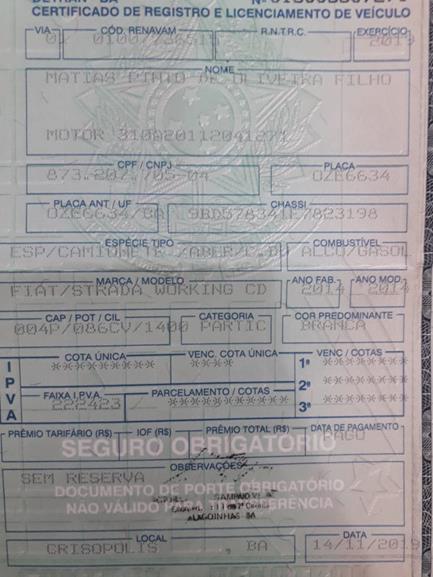 DETRAN - BA
CERTIFICADO DE REGISTRO E LICENCIAMENTO DE VEÍCULO
VIA CÓD. RENAVAM R.N.T.R.C. EXERCÍCIO
2019
NOME
MATIAS PINTO DE OLIVEIRA FILHO
MOTOR 310A20112041271
CPF / CNPJ PLACA
OZE6634
PLACA ANT / UF CHASSI
OZE6634/BA 9BD578341E7823198
ESPÉCIE TIPO COMBUSTÍVEL
ESP/CAMIONETE ALCO/GASOL
MARCA / MODELO ANO FAB. ANO MOD.
FIAT/STRADA WORKING CD 2014 2014
CAP / POT / CIL CATEGORIA COR PREDOMINANTE
004P/086CV/1400 PARTIC BRANCA
IPVA
COTA ÚNICA VENC. COTA ÚNICA VENC / COTAS
********* ******** 1ª ********
2ª ********
FAIXA I.P.V.A. PARCELAMENTO / COTAS
222423 / ********** 3ª ********
PRÊMIO TARIFÁRIO (R$) IOF (R$) PRÊMIO TOTAL (R$) DATA DE PAGAMENTO
PAGO
SEGURO OBRIGATÓRIO
OBSERVAÇÕES
SEM RESERVA
DOCUMENTO DE PORTE OBRIGATÓRIO
NÃO VÁLIDO PARA TRANSFERÊNCIA
ALAGOINHAS BA
LOCAL DATA
CRISOPOLIS , BA 14/11/2019